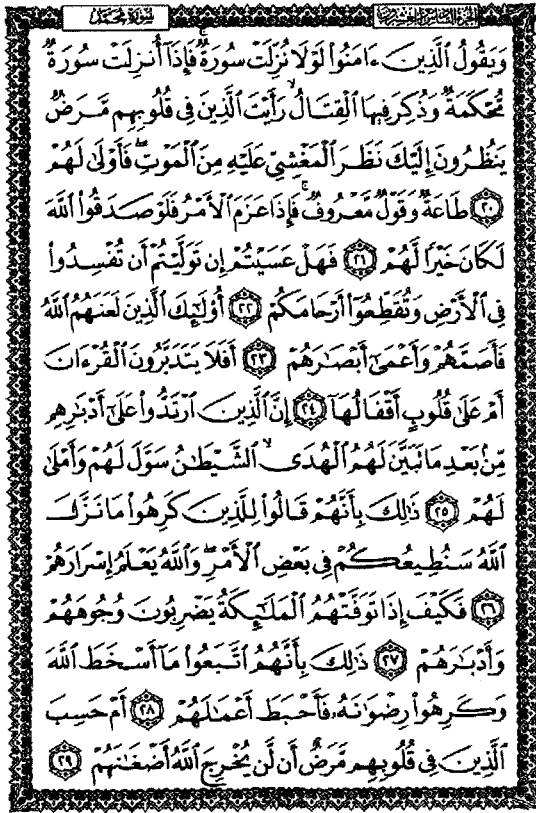 الجزء السادس والعشرون
سورة محمد
وَيَقُولُ ٱلَّذِينَ ءَامَنُوا۟ لَوْلَا نُزِّلَتْ سُورَةٌ ۖ فَإِذَآ أُنزِلَتْ سُورَةٌ
مُّحْكَمَةٌ وَذُكِرَ فِيهَا ٱلْقِتَالُ ۙ رَأَيْتَ ٱلَّذِينَ فِى قُلُوبِهِم مَّرَضٌ
يَنظُرُونَ إِلَيْكَ نَظَرَ ٱلْمَغْشِىِّ عَلَيْهِ مِنَ ٱلْمَوْتِ ۖ فَأَوْلَىٰ لَهُمْ
٢٠ طَاعَةٌ وَقَوْلٌ مَّعْرُوفٌ ۚ فَإِذَا عَزَمَ ٱلْأَمْرُ فَلَوْ صَدَقُوا۟ ٱللَّهَ
لَكَانَ خَيْرًا لَّهُمْ ٢١ فَهَلْ عَسَيْتُمْ إِن تَوَلَّيْتُمْ أَن تُفْسِدُوا۟
فِى ٱلْأَرْضِ وَتُقَطِّعُوٓا۟ أَرْحَامَكُمْ ٢٢ أُو۟لَـٰٓئِكَ ٱلَّذِينَ لَعَنَهُمُ ٱللَّهُ
فَأَصَمَّهُمْ وَأَعْمَىٰٓ أَبْصَـٰرَهُمْ ٢٣ أَفَلَا يَتَدَبَّرُونَ ٱلْقُرْءَانَ
أَمْ عَلَىٰ قُلُوبٍ أَقْفَالُهَآ ٢٤ إِنَّ ٱلَّذِينَ ٱرْتَدُّوا۟ عَلَىٰٓ أَدْبَـٰرِهِم
مِّنۢ بَعْدِ مَا تَبَيَّنَ لَهُمُ ٱلْهُدَى ۙ ٱلشَّيْطَـٰنُ سَوَّلَ لَهُمْ وَأَمْلَىٰ
لَهُمْ ٢٥ ذَٰلِكَ بِأَنَّهُمْ قَالُوا۟ لِلَّذِينَ كَرِهُوا۟ مَا نَزَّلَ
ٱللَّهُ سَنُطِيعُكُمْ فِى بَعْضِ ٱلْأَمْرِ ۖ وَٱللَّهُ يَعْلَمُ إِسْرَارَهُمْ
٢٦ فَكَيْفَ إِذَا تَوَفَّتْهُمُ ٱلْمَلَـٰٓئِكَةُ يَضْرِبُونَ وُجُوهَهُمْ
وَأَدْبَـٰرَهُمْ ٢٧ ذَٰلِكَ بِأَنَّهُمُ ٱتَّبَعُوا۟ مَآ أَسْخَطَ ٱللَّهَ
وَكَرِهُوا۟ رِضْوَٰنَهُۥ فَأَحْبَطَ أَعْمَـٰلَهُمْ ٢٨ أَمْ حَسِبَ
ٱلَّذِينَ فِى قُلُوبِهِم مَّرَضٌ أَن لَّن يُخْرِجَ ٱللَّهُ أَضْغَـٰنَهُمْ ٢٩